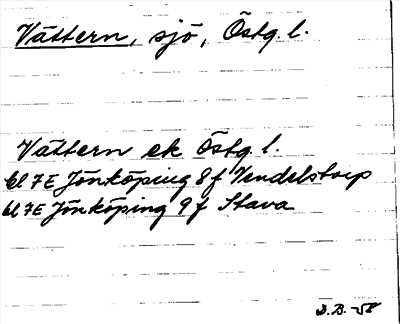 Vättern, sjö, Östg. l.
Vättern ek Östg. l.
bl 7E Jönköping 8f Vendelstorp
bl 7E Jönköping 9f Stava
S.B. -58